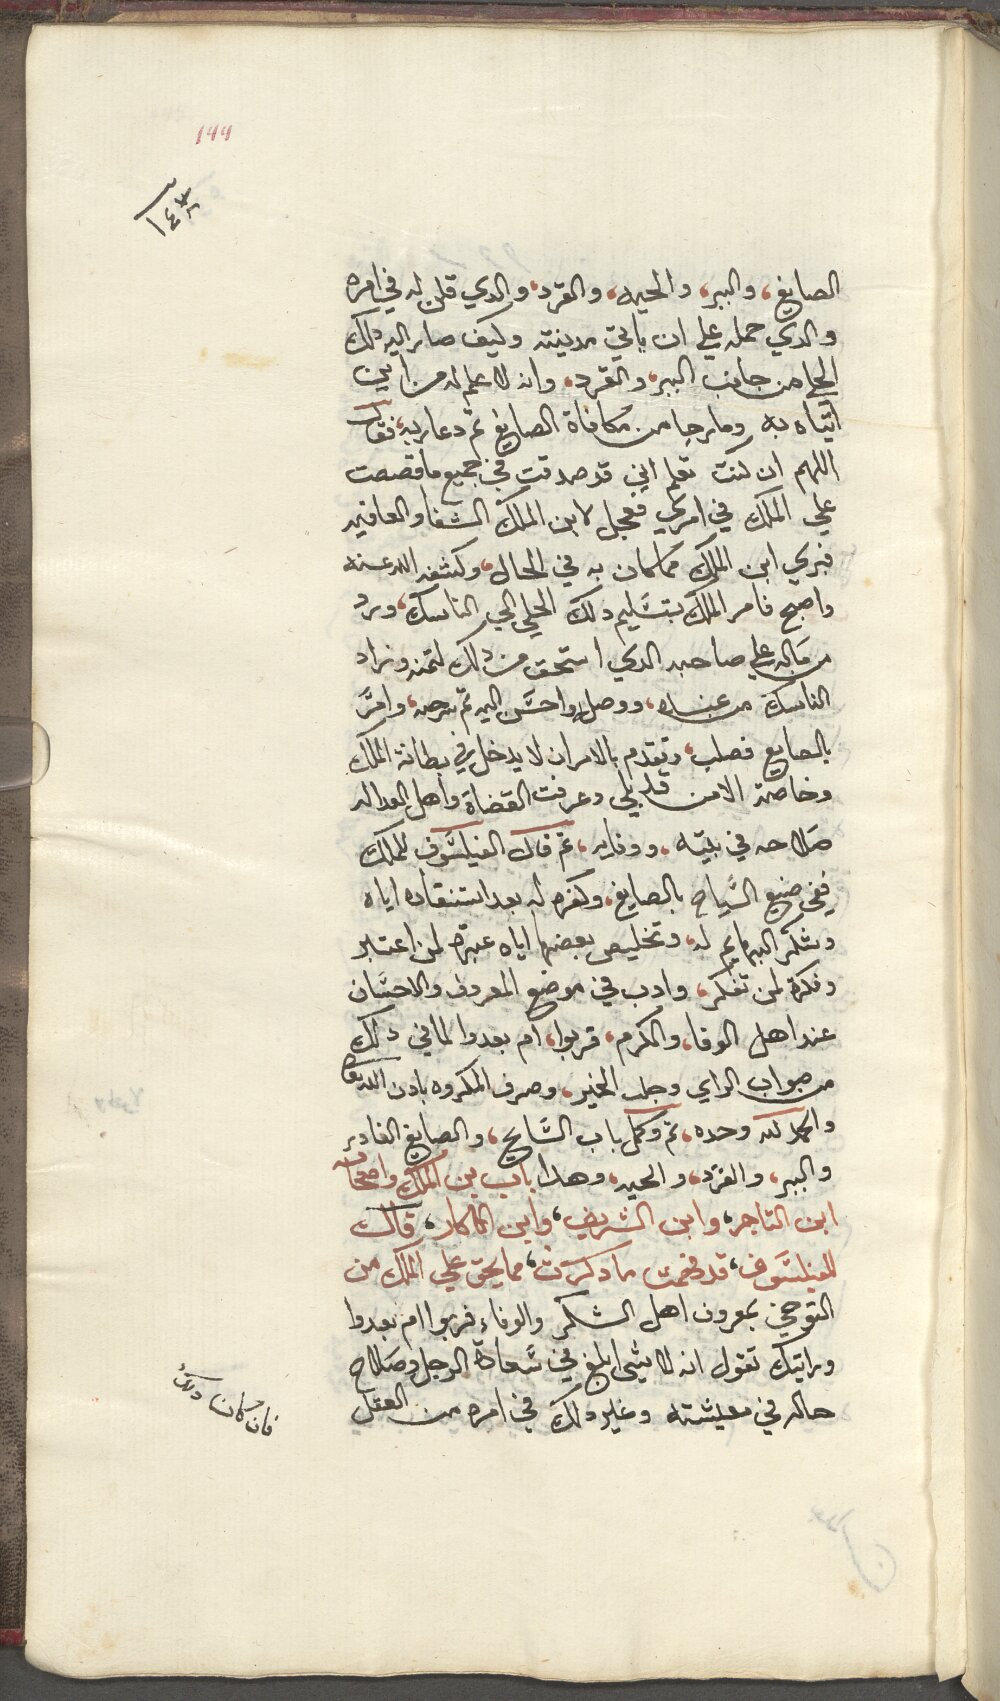 ١٩٩
١٤٣
الصايغ، والببر، والحيه، والقرد، والدي قلن له في امره
والدي حمله علي ان ياتي مدينته وكيف صار اليه دلك
الحلي من جانب الببر، والقرد، وانه لا علم له من اين
اتياه به وما رجا من مكافاة الصايغ ثم دعا ربه، فقال
اللهم ان كنت تعلم اني قد صدقت في جميع ما قصصت
علي الملك في امري فعجل لابن الملك الشفا والعافيه
فبري ابن الملك مما كان به في الحال، وكشفه الله عنه
واصبح فامر الملك بتسليم دلك الحلي الي الناسك، ورد
من ماله علي صاحبه الدي استحق من دلك لثمنه وزاد
الناسك من عنده، ووصله واحسن اليه ثم سرحه، وامر
بالصايغ فصلب، وتقدم بالامر ان لا يدخل في بطانة الملك
وخاصته الا من قد بلي وعرفت القضاة واهل العداله
صلاحه في بيته، ووفايه، ثم قال الفيلسوف للملك
ففي صنيع السياح بالصايغ، وكفره له بعد استنقاده اياه
وشكر البهايم له، وتخليص بعضها اياه عبرة لمن اعتبر
وفكرة لمن تفكر، وادب في موضع المعروف والاحسان
عند اهل الوفا، والكرم، قربوا، ام بعدوا لما في دلك
من صواب الراي وجلب الخير، وصرف المكروه بادن الله تعالى
والحمد لله وحده، تم وكمل باب السايح، والصايغ الغادر
والببر، والقرد، والحيه، وهدا باب بن الملك واصحابه
ابن التاجر، وابن الشريف، وابن الاكار، قال الملك
للفيلسوف، قد فهمت ما دكرت، مما يحق علي الملك من
التوخي بمعروف اهل الشكر والوفاء، قربوا ام بعدوا
ورايتك تقول انه لا شي ابلغ في سعادة الرجل وصلاح
حاله في معيشته وغير دلك في امره من العقل
فان كان دلك